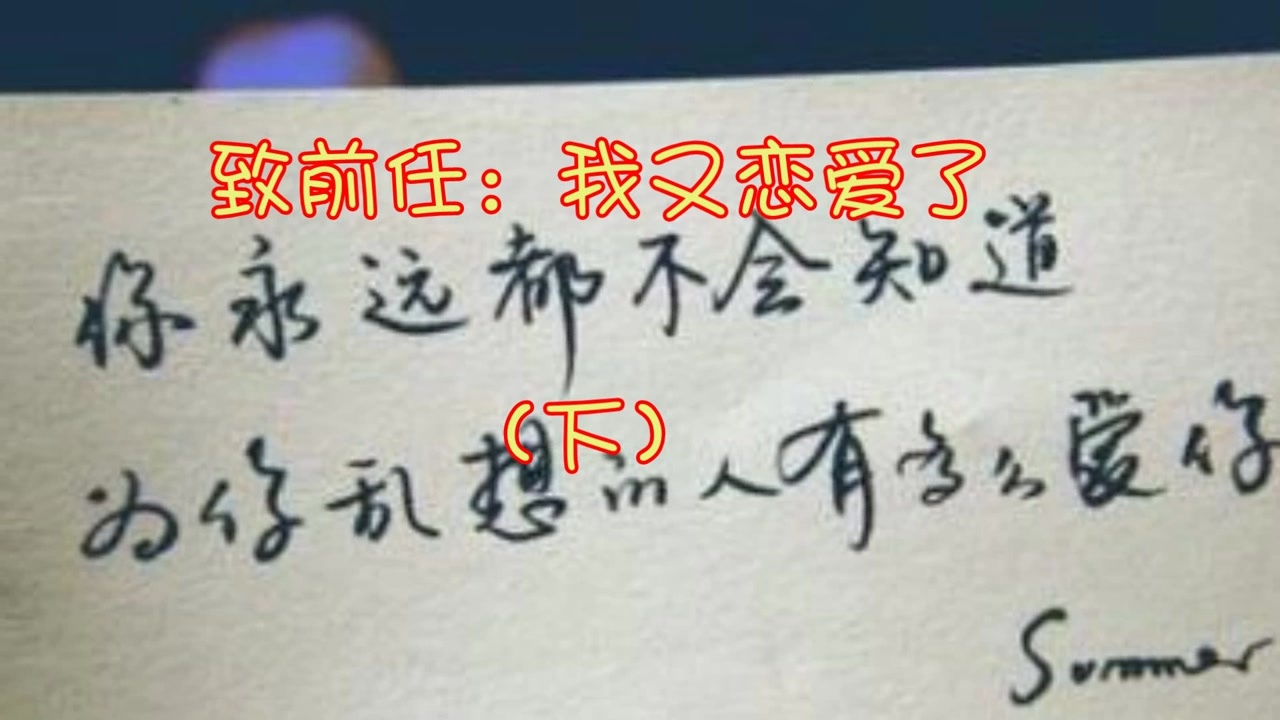 致前任：我又恋爱了
你永远都不会知道
（下）
为你乱想的人有多么爱你
Summer